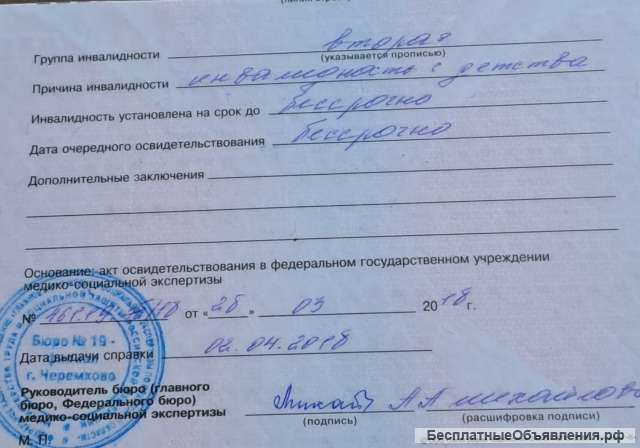 (линия отреза)
Группа инвалидности вторая
(указывается прописью)
Причина инвалидности инвалидность с детства
Инвалидность установлена на срок до бессрочно
Дата очередного освидетельствования бессрочно
Дополнительные заключения
Основание: акт освидетельствования в федеральном государственном учреждении
медико-социальной экспертизы
№ от «26» 03 2018 г.
Бюро № 19 -
г. Черемхово
Дата выдачи справки 02.04.2018
Руководитель бюро (главного
бюро, Федерального бюро)
медико-социальной экспертизы А А Михайлова
(подпись) (расшифровка подписи)
М. П.
БесплатныеОбъявления.рф